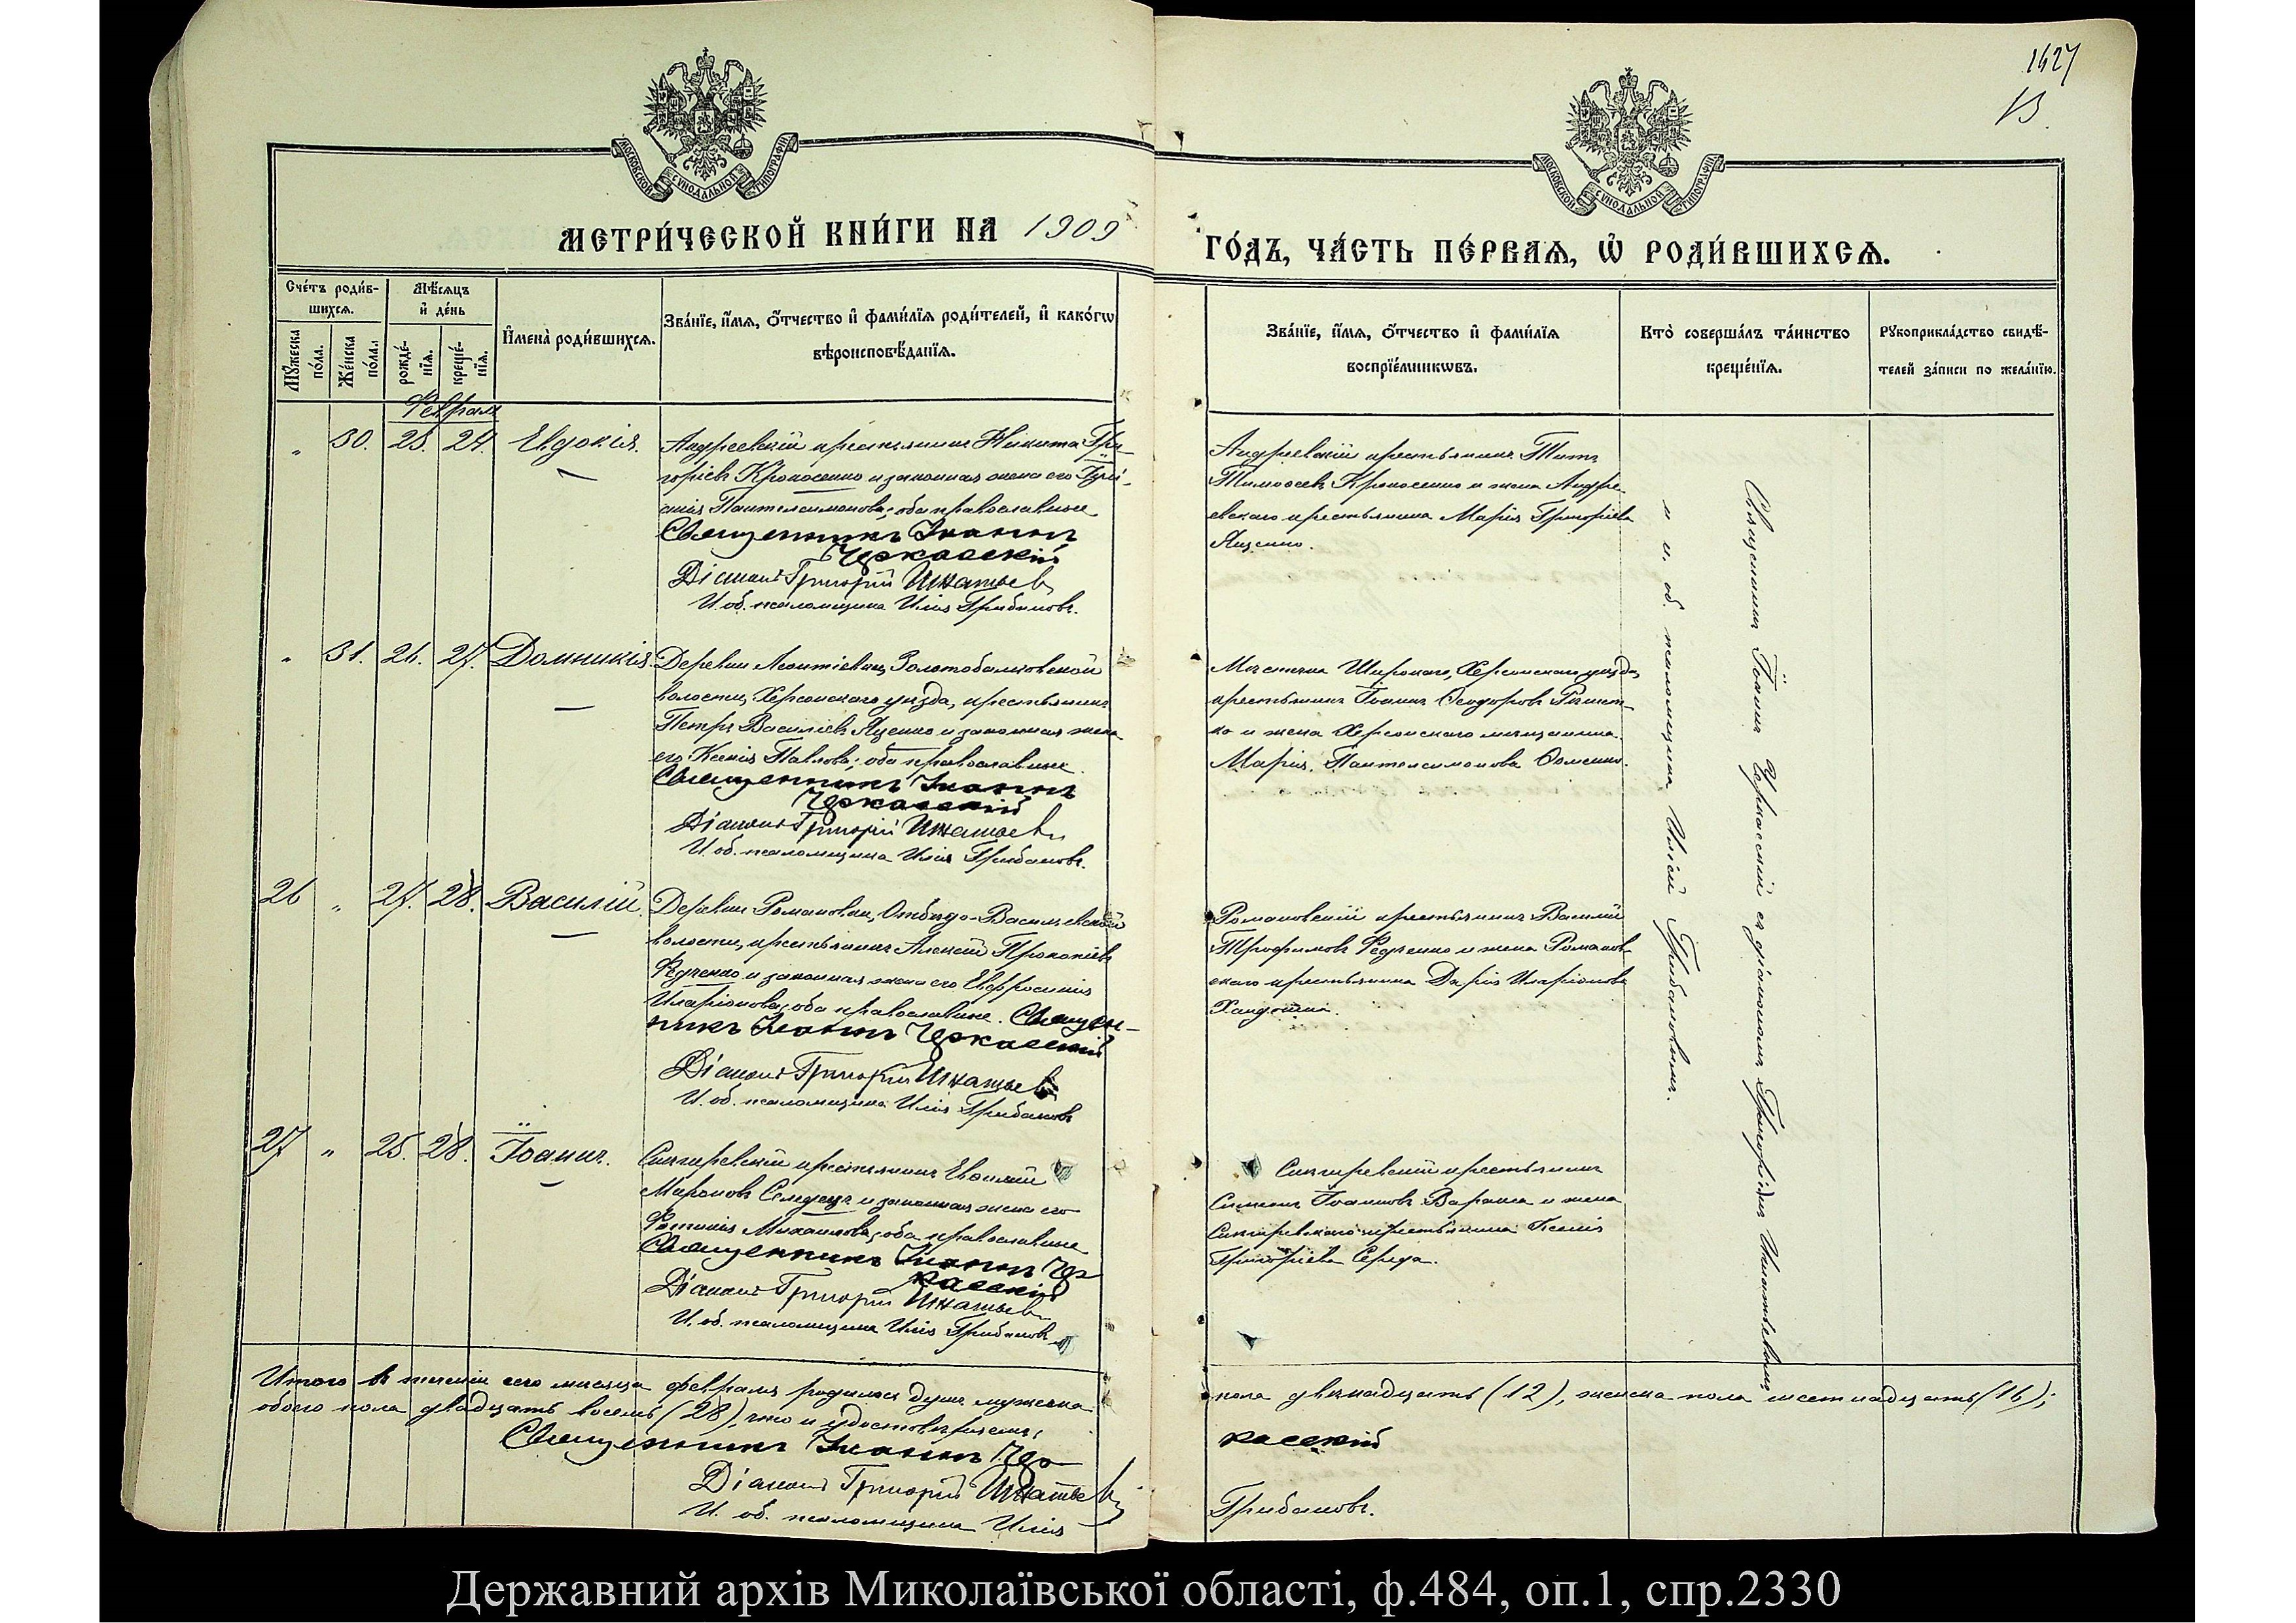 1627
13.
МОСКОВСКОЙ СѴНОДАЛЬНОЙ ТИПОГРАФІИ
МОСКОВСКОЙ СѴНОДАЛЬНОЙ ТИПОГРАФІИ
МЕТРИ́ЧЕСКОЙ КНИ́ГИ НА 1909
ГО́ДЪ, ЧА́СТЬ ПЕ́РВАѦ, Ѡ҆ РОДИ́ВШИХСѦ.
Сче́тъ роди́в-
шихсѧ.
Мꙋ́жеска по́ла.
Же́нска по́ла.
Мѣ́сѧцъ
и҆ де́нь
рожде́-
нїѧ.
креще́-
нїѧ.
И҆мена̀ роди́вшихсѧ.
Зва́нїе, и҆́мѧ, ѻ҆́тчество и҆ фами́лїѧ роди́телей, и҆ како́гѡ
вѣроисповѣ́данїѧ.
Зва́нїе, и҆́мѧ, ѻ҆́тчество и҆ фами́лїѧ
воспрїе́мникѡвъ.
Кто̀ соверша́лъ та́инство
креще́нїѧ.
Рꙋкоприкла́дство свидѣ́-
телей за́писи по жела́нїю.
Февраля
" 30. 23. 24. Евдокія.
Андреевскій крестьянинъ Никита Гри-
горіевъ Крокосенко и законная жена его
Пантелеимонова, оба православные
Священникъ Іоаннъ
Черкасскій
Діаконъ Григорій Игнатьевъ
И. об. псаломщика Илія Грибановъ.
Андреевскій крестьянинъ Титъ
Тимофеевъ Крокосенко и жена Андре-
евскаго крестьянина Марія Григоріева
Яценко.
" 31. 26. 27. Домникія.
Деревни Леонтіевки, Золотобалковской
волости, Херсонскаго уѣзда, крестьянинъ
Петръ Василіевъ Яценко и законная жена
его Ксенія Павлова; оба православные.
Священникъ Іоаннъ
Черкасскій
Діаконъ Григорій Игнатьевъ
И. об. псаломщика Илія Грибановъ.
Мѣстечка Широкаго, Херсонскаго уѣзда,
крестьянинъ Іоаннъ Ѳеодоровъ
и жена Херсонскаго мѣщанина
Марія Пантелеимонова Фоменко.
26 " 27. 28. Василій.
Деревни Романовки, Отбѣдо-Васильевской
волости, крестьянинъ Алексій Прокопіевъ
Федченко и законная жена его Евфросинія
Иларіонова, оба православные. Священ-
никъ Іоаннъ Черкасскій
Діаконъ Григорій Игнатьевъ
И. об. псаломщика Илія Грибановъ
Романовскій крестьянинъ Василій
Трофимовъ Федченко и жена Романов-
скаго крестьянина Дарія Иларіонова
27 " 25. 28. Іоаннъ.
Снигиревскій крестьянинъ Евѳимій
Мироновъ Селедецъ и законная жена его
Фотинія Михаилова, оба православные
Священникъ Іоаннъ Чер-
касскій
Діаконъ Григорій Игнатьевъ
И. об. псаломщика Илія Грибановъ
Снигиревскій крестьянинъ
Симеонъ Іоанновъ Варава и жена
Снигиревскаго крестьянина Ксенія
Григоріева Середа.
Священникъ Іоаннъ Черкасскій съ діакономъ Григоріемъ Игнатьевымъ
и и. об. псаломщика Иліей Грибановымъ.
Итого въ теченіи сего мѣсяца февраля родилось душъ мужеска
пола двѣнадцать (12), женска пола шестнадцать (16);
обоего пола двадцать восемь (28), что и удостовѣряемъ:
Священникъ Іоаннъ Чер-
касскій
Діаконъ Григорій Игнатьевъ
И. об. псаломщика Илія
Грибановъ.
Державний архів Миколаївської області, ф.484, оп.1, спр.2330